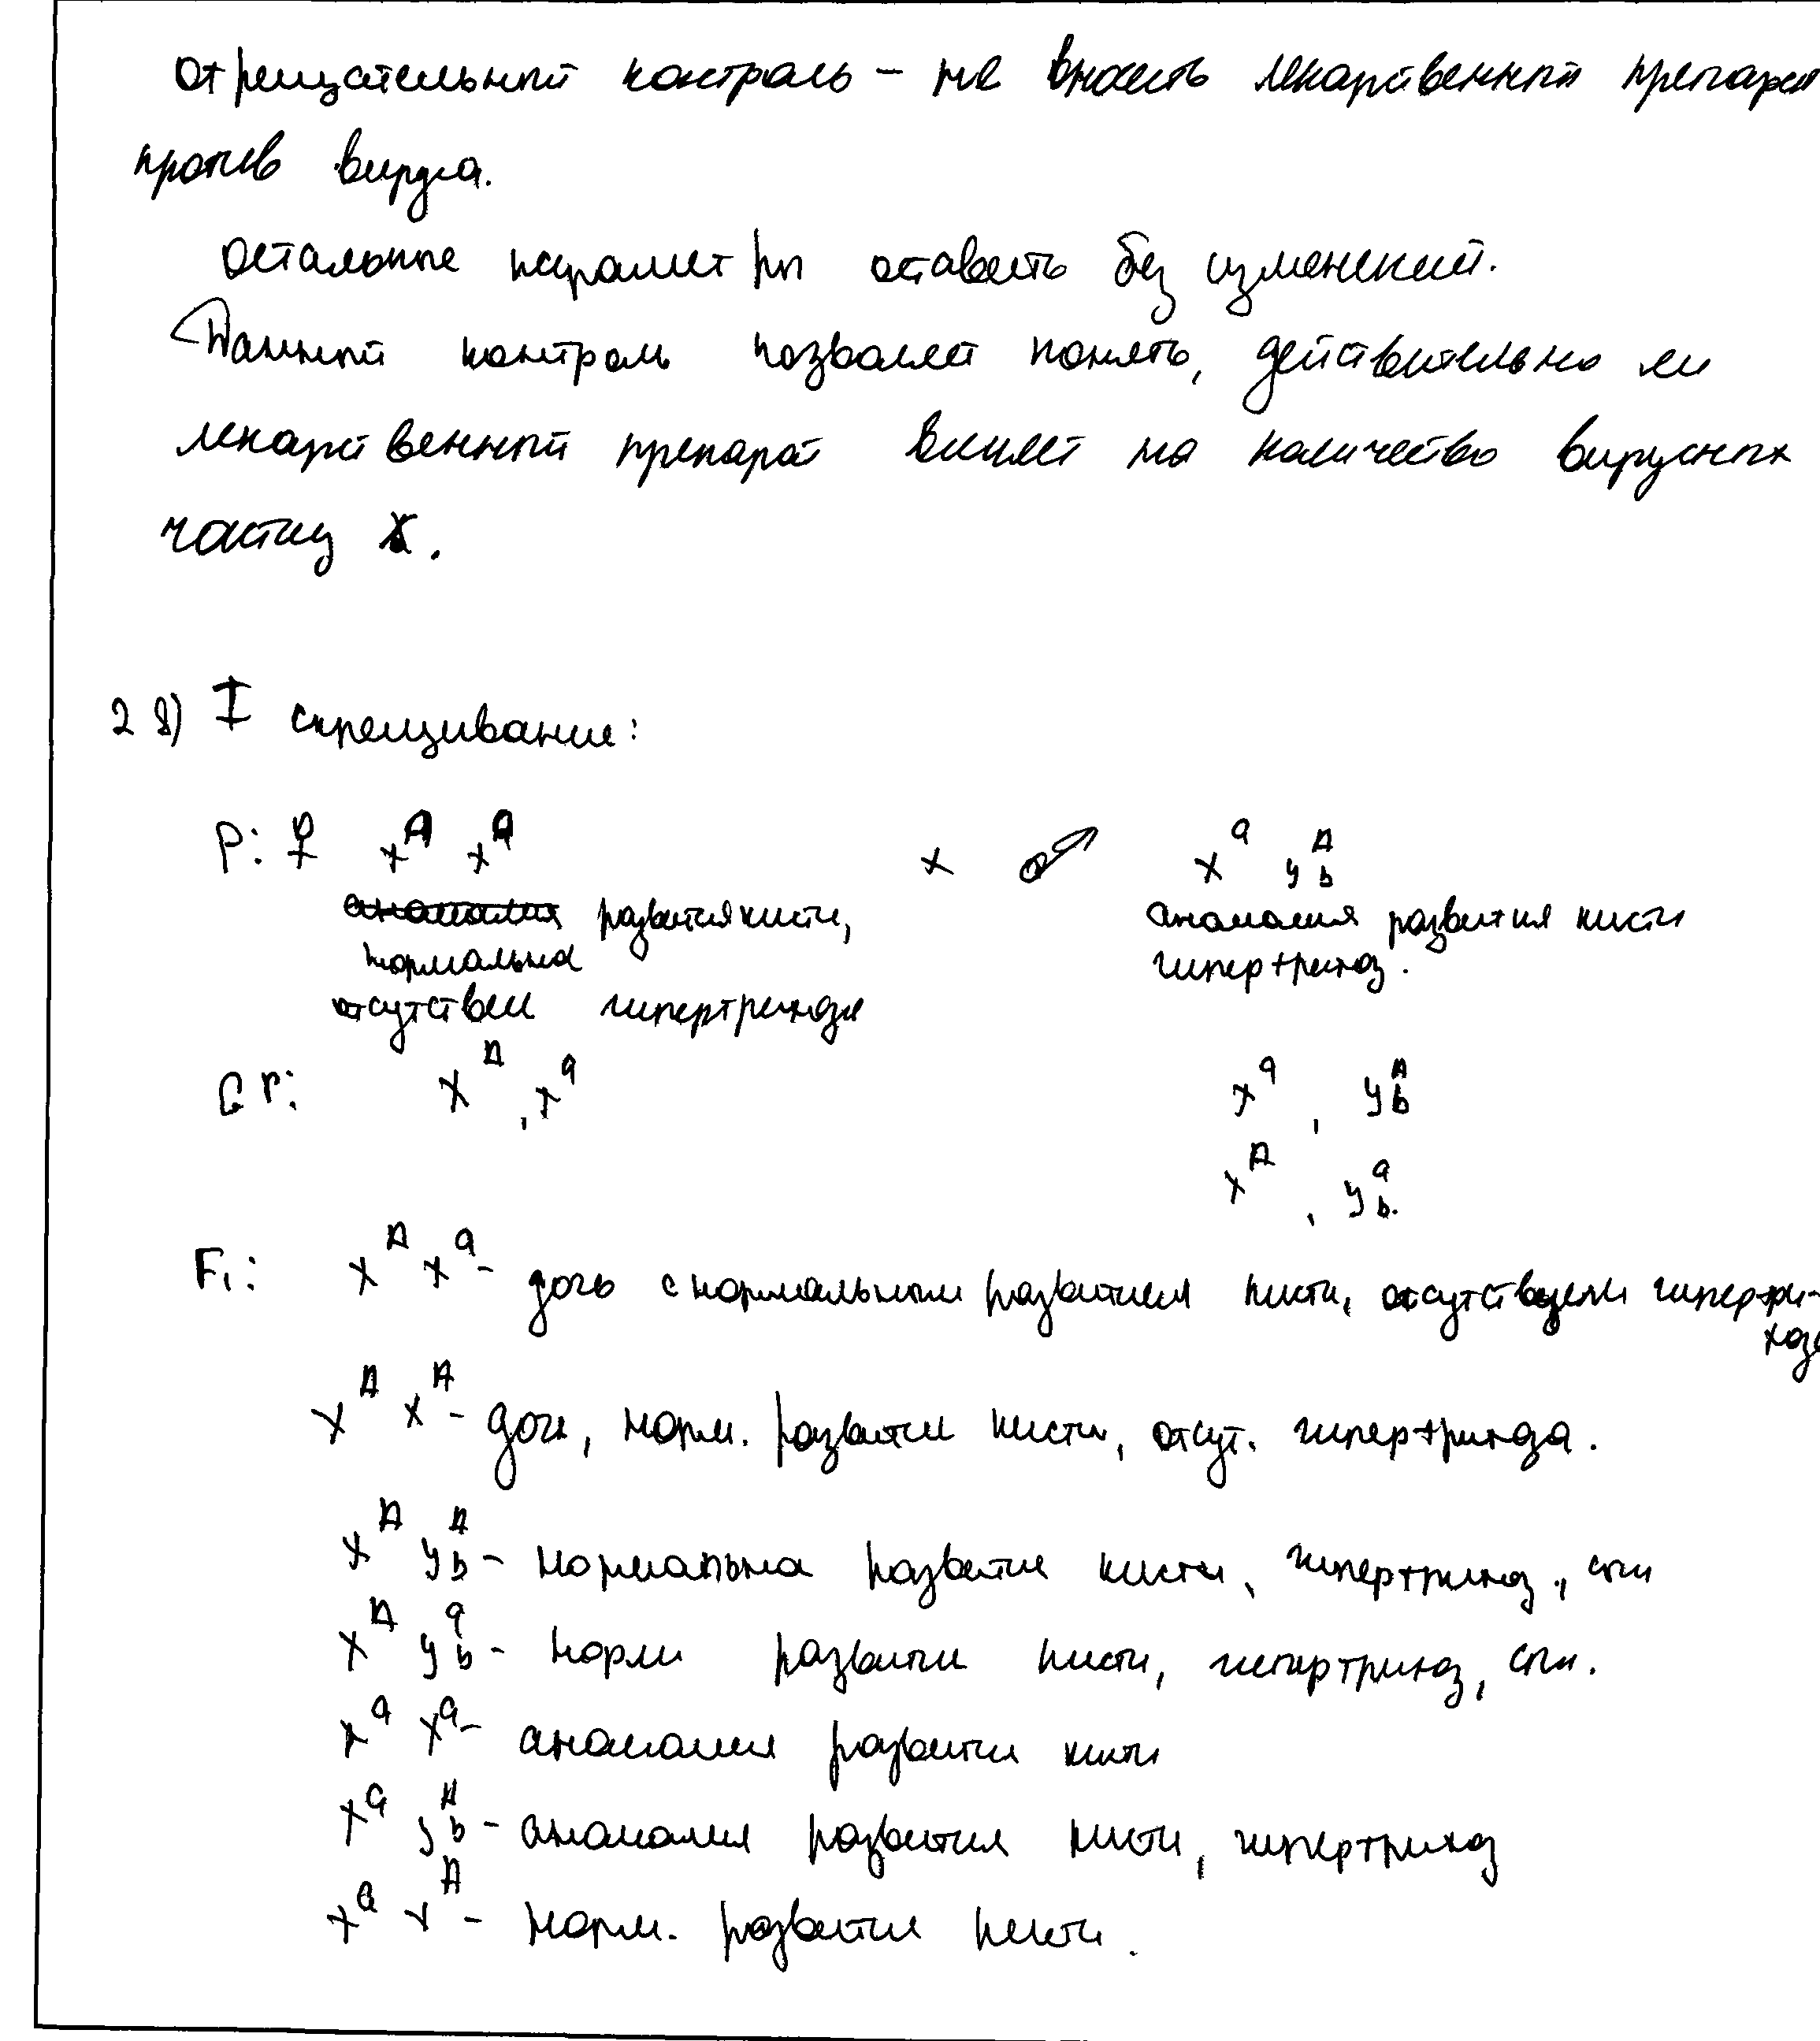 отрицательный контроль – не вносить лекарственный препарат
против вируса.
остальные параметры оставить без изменений.
Данный контроль позволяет понять, действительно ли
лекарственный препарат влияет на количество вирусных
частиц X.
28) I скрещивание:
P: ♀ x^A x^a × ♂ x^a y^A_b
аномалия развития кисти, аномалия развития кисти
нормальна гипертрихоз.
отсутствеи гипертрихоза
GP: x^A, x^a x^a, y^A_b
x^A, y^a_b.
F1: x^A x^a – дочь с нормальным развитием кисти, гипертри-
хоза
x^A x^A – дочь, норм. развитие кисти, отсут. гипертрихоза.
x^A y^A_b – нормальна развитие кисти, гипертрихоз, сын
x^A y^a_b – норм развитие кисти, гипертрихоз, сын.
x^a x^a – аномалия развитие кисти
x^a y^A_b – аномалия развития кисти, гипертрихоз
x^a x^A – норм. развитие кисти.